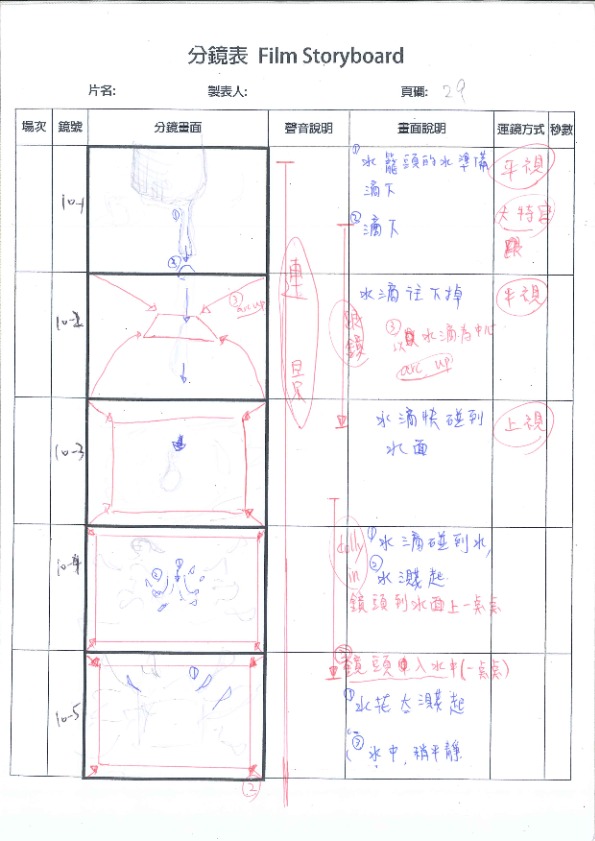 分鏡表 Film Storyboard
片名:
製表人:
頁碼: 29
場次 鏡號 分鏡畫面 聲音說明 畫面說明 運鏡方式 秒數
10-1
①
②
① 水籠頭的水準備
滴下
② 滴下
平視
大特寫
10-2
③
arc up
水滴往下掉
③ 以水滴為中心
arc up
跟鏡
平視
10-3
水滴快碰到
水面
上視
10-4
①
②
dolly
in
① 水滴碰到水,
② 水濺起
鏡頭到水面上一點點
10-5
①
②
② 鏡頭入水中(一點點)
① 水花大濺起
② 水中,稍平靜